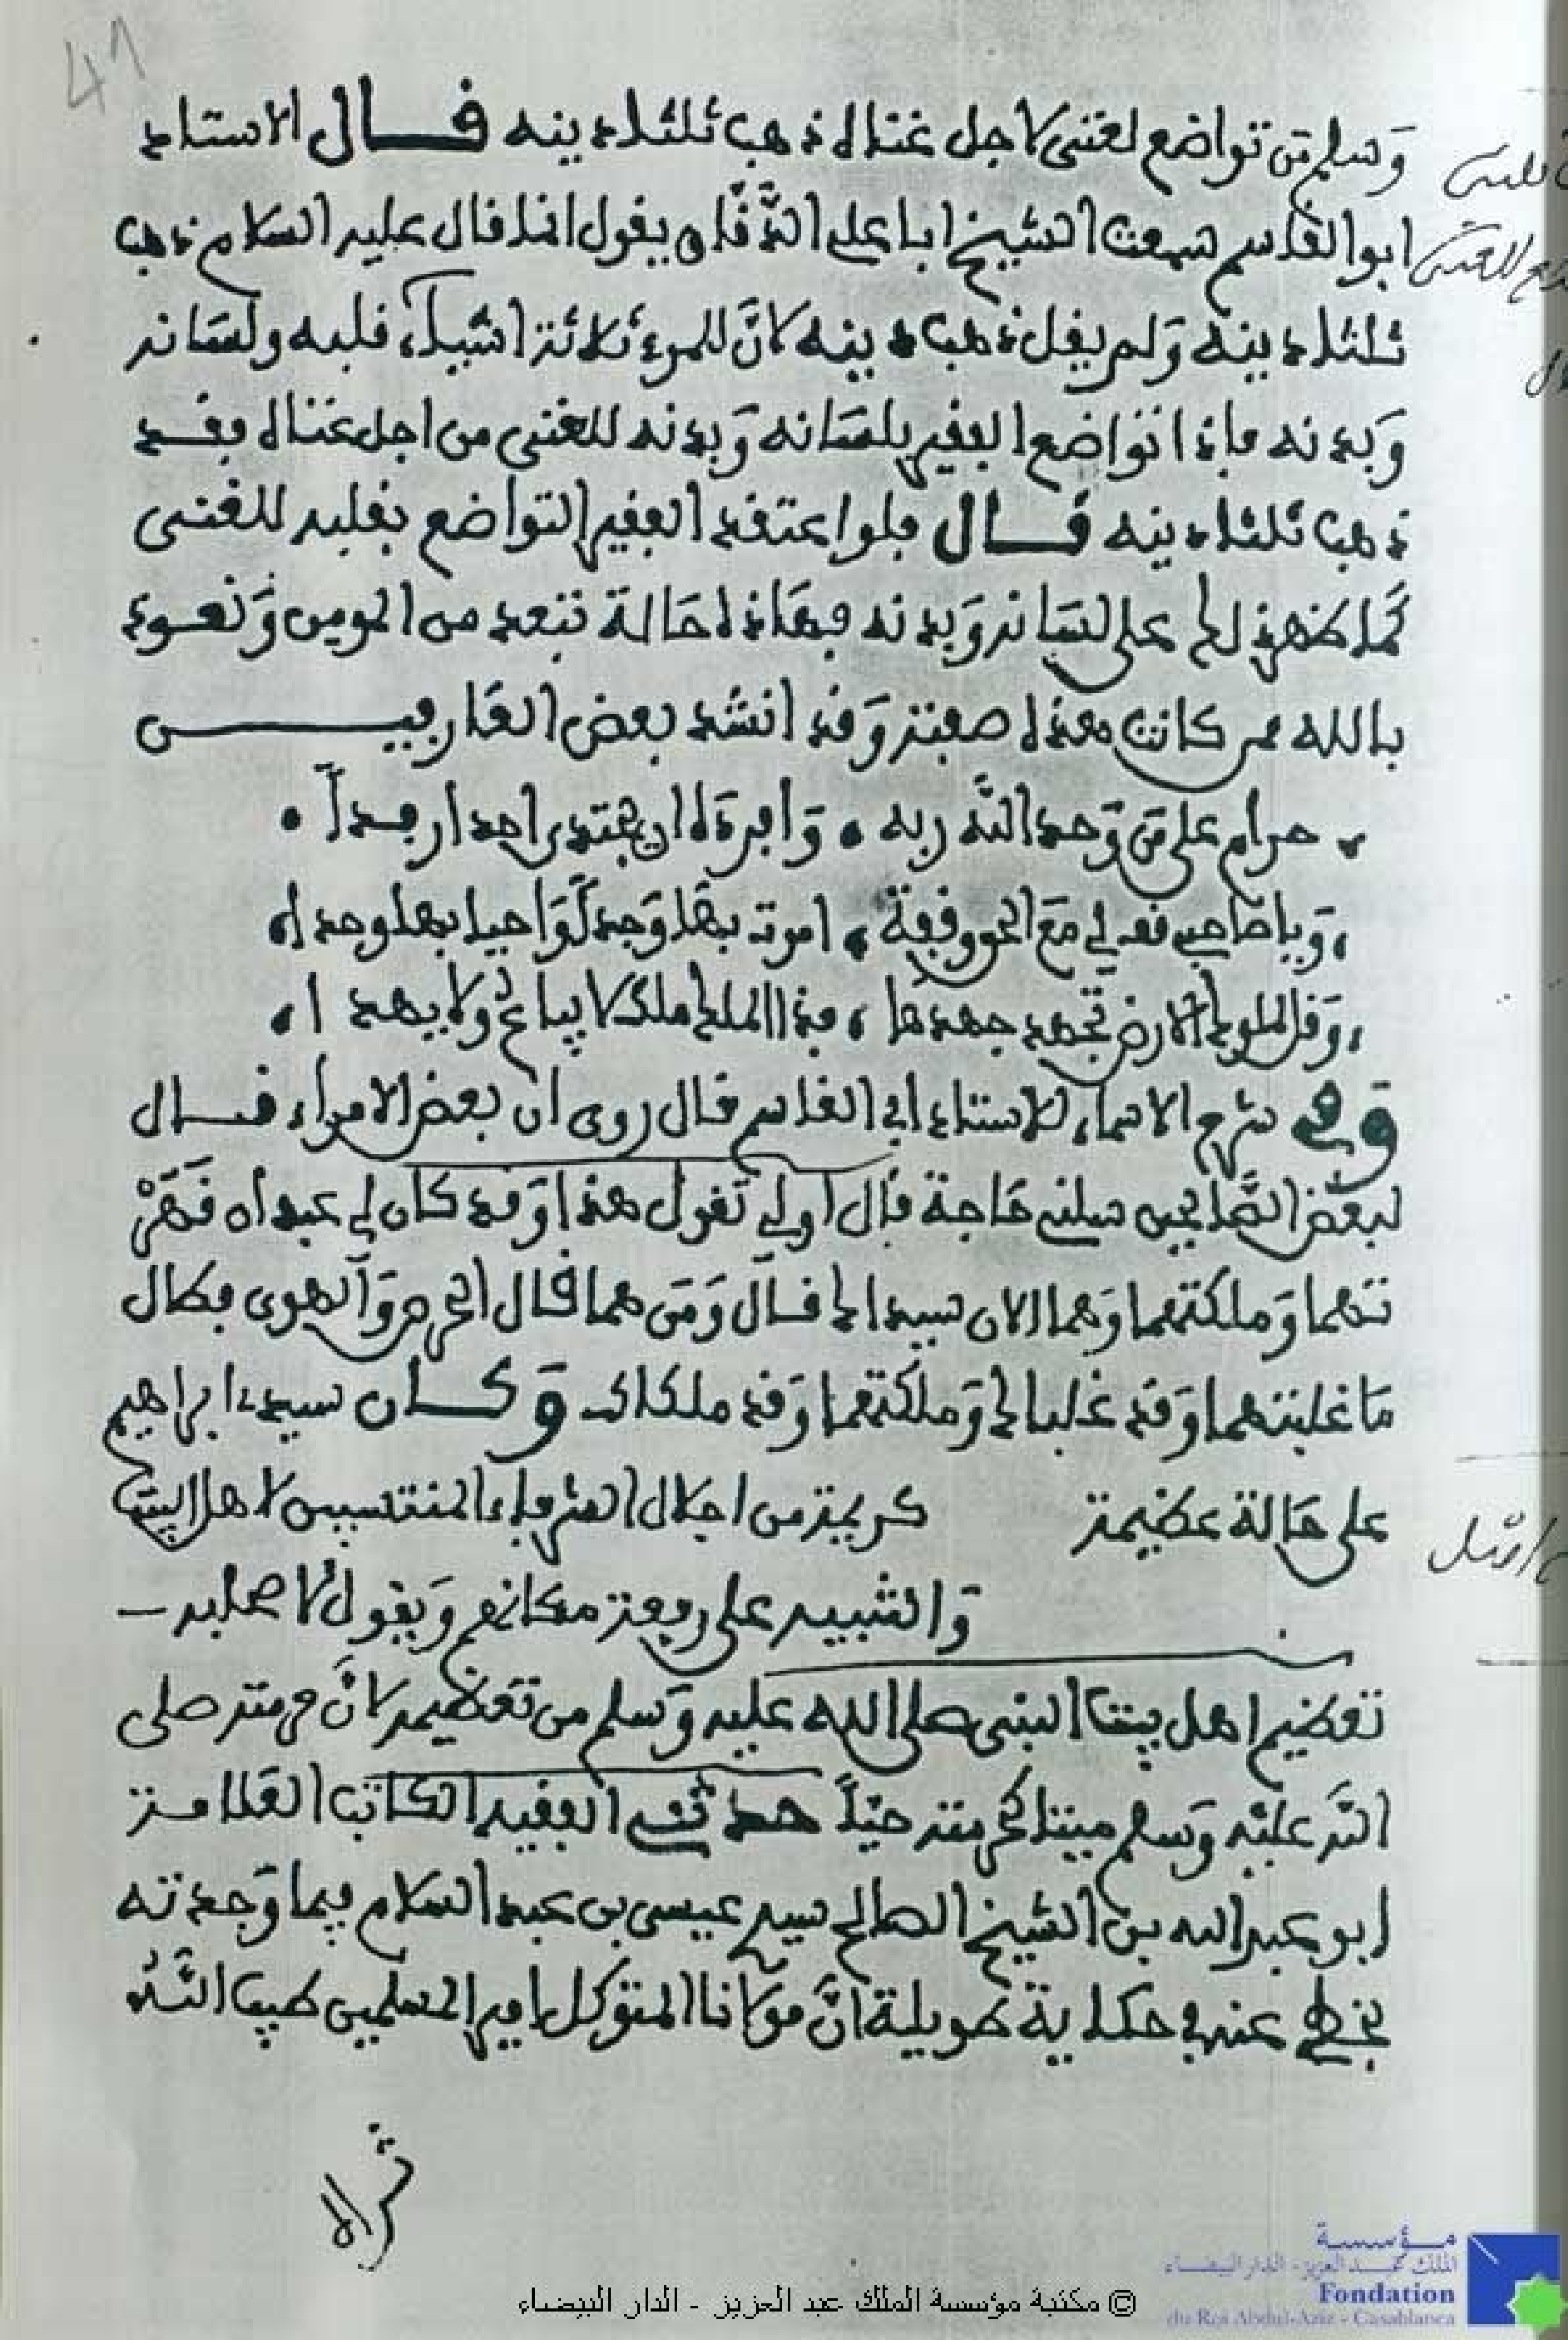 41
وَسلم مَن تواضع لغنى لاجل غناه ذهب ثلثا دينه قال الاستاذ
ابو القاسم سمعت الشيخ ابا علي الدَّقَّاق يقول انما قال عليه السلام ذهب
ثلثا دينه وَلم يقل ذهب دينه لانَّ للمرء ثلاثة اشيآء قلبه ولسَانه
وَبدنه فاذا تواضع الفقير بلسَانه وَبدنه للغنى من اجل غناه فقد
ذهب ثلثا دينه قال فلو اعتقد الفقير التواضع بقلبه للغنى
كَما ظهر ذلك على لسَانه وَبدنه فهَاذه حَالة تبعد من المومن وَنعوذ
بالله ممن كانت هذه صفته وَقد انشد بعض العَارفيـن
حرام على مَن وَحد اللَّه ربه وَافرده ان يجتدى احدا رفدآ
وَيا صَاحبي قف لي مَع الحق وقفة اموت بهَا وَجدًا وَاحيا بها وجدا
وَقل لملوك الارض تجهد جهدها فذا الملك ملك لا يباع وَلا يهدا
وَفي شرح الاسماء للاستاذ ابي القاسم قال روى ان بعض الامراء قال
لبعض الصَّالحين سلني حَاجة قال اَولي تقول هذا وَقد كان لي عبدان قَهَرْ
تهما وَملكتهما وَهما الان سيداك قال وَمَن هما قال الحرص وَالهوى فكان
مَا غلبتهما وَقد غلباك وَملكتهما وَقد ملكاك وَكان سيدي ابراهيم
على حَالة عظيمة كريمة من اجلال الشرفاء المنتسبين لاهل البيت
وَالتنبيه على رفعة مكانهم وَيقول لاصحابه
تعظيم اهل بيت النبى صلى الله عليه وَسلم من تعظيمه لانَّ حرمته صلى
اللَّه عليْه وَسلم ميتا كحرمته حيًّا حدثني الفقيه الكاتب العَلامة
ابو عبد الله بن الشيخ الصالح سيدي عيسى بن عبد السلام فيما وَجدته
بخطه عنه في حكاية طويلة انَّ مَولانا المتوكل امير المسلمين طيب اللَّه
ثراه
© مكتبة مؤسسة الملك عبد العزيز - الدار البيضاء
مؤسسة
الملك عبد العزيز - الدار البيضاء
Fondation
du Roi Abdul-Aziz - Casablanca